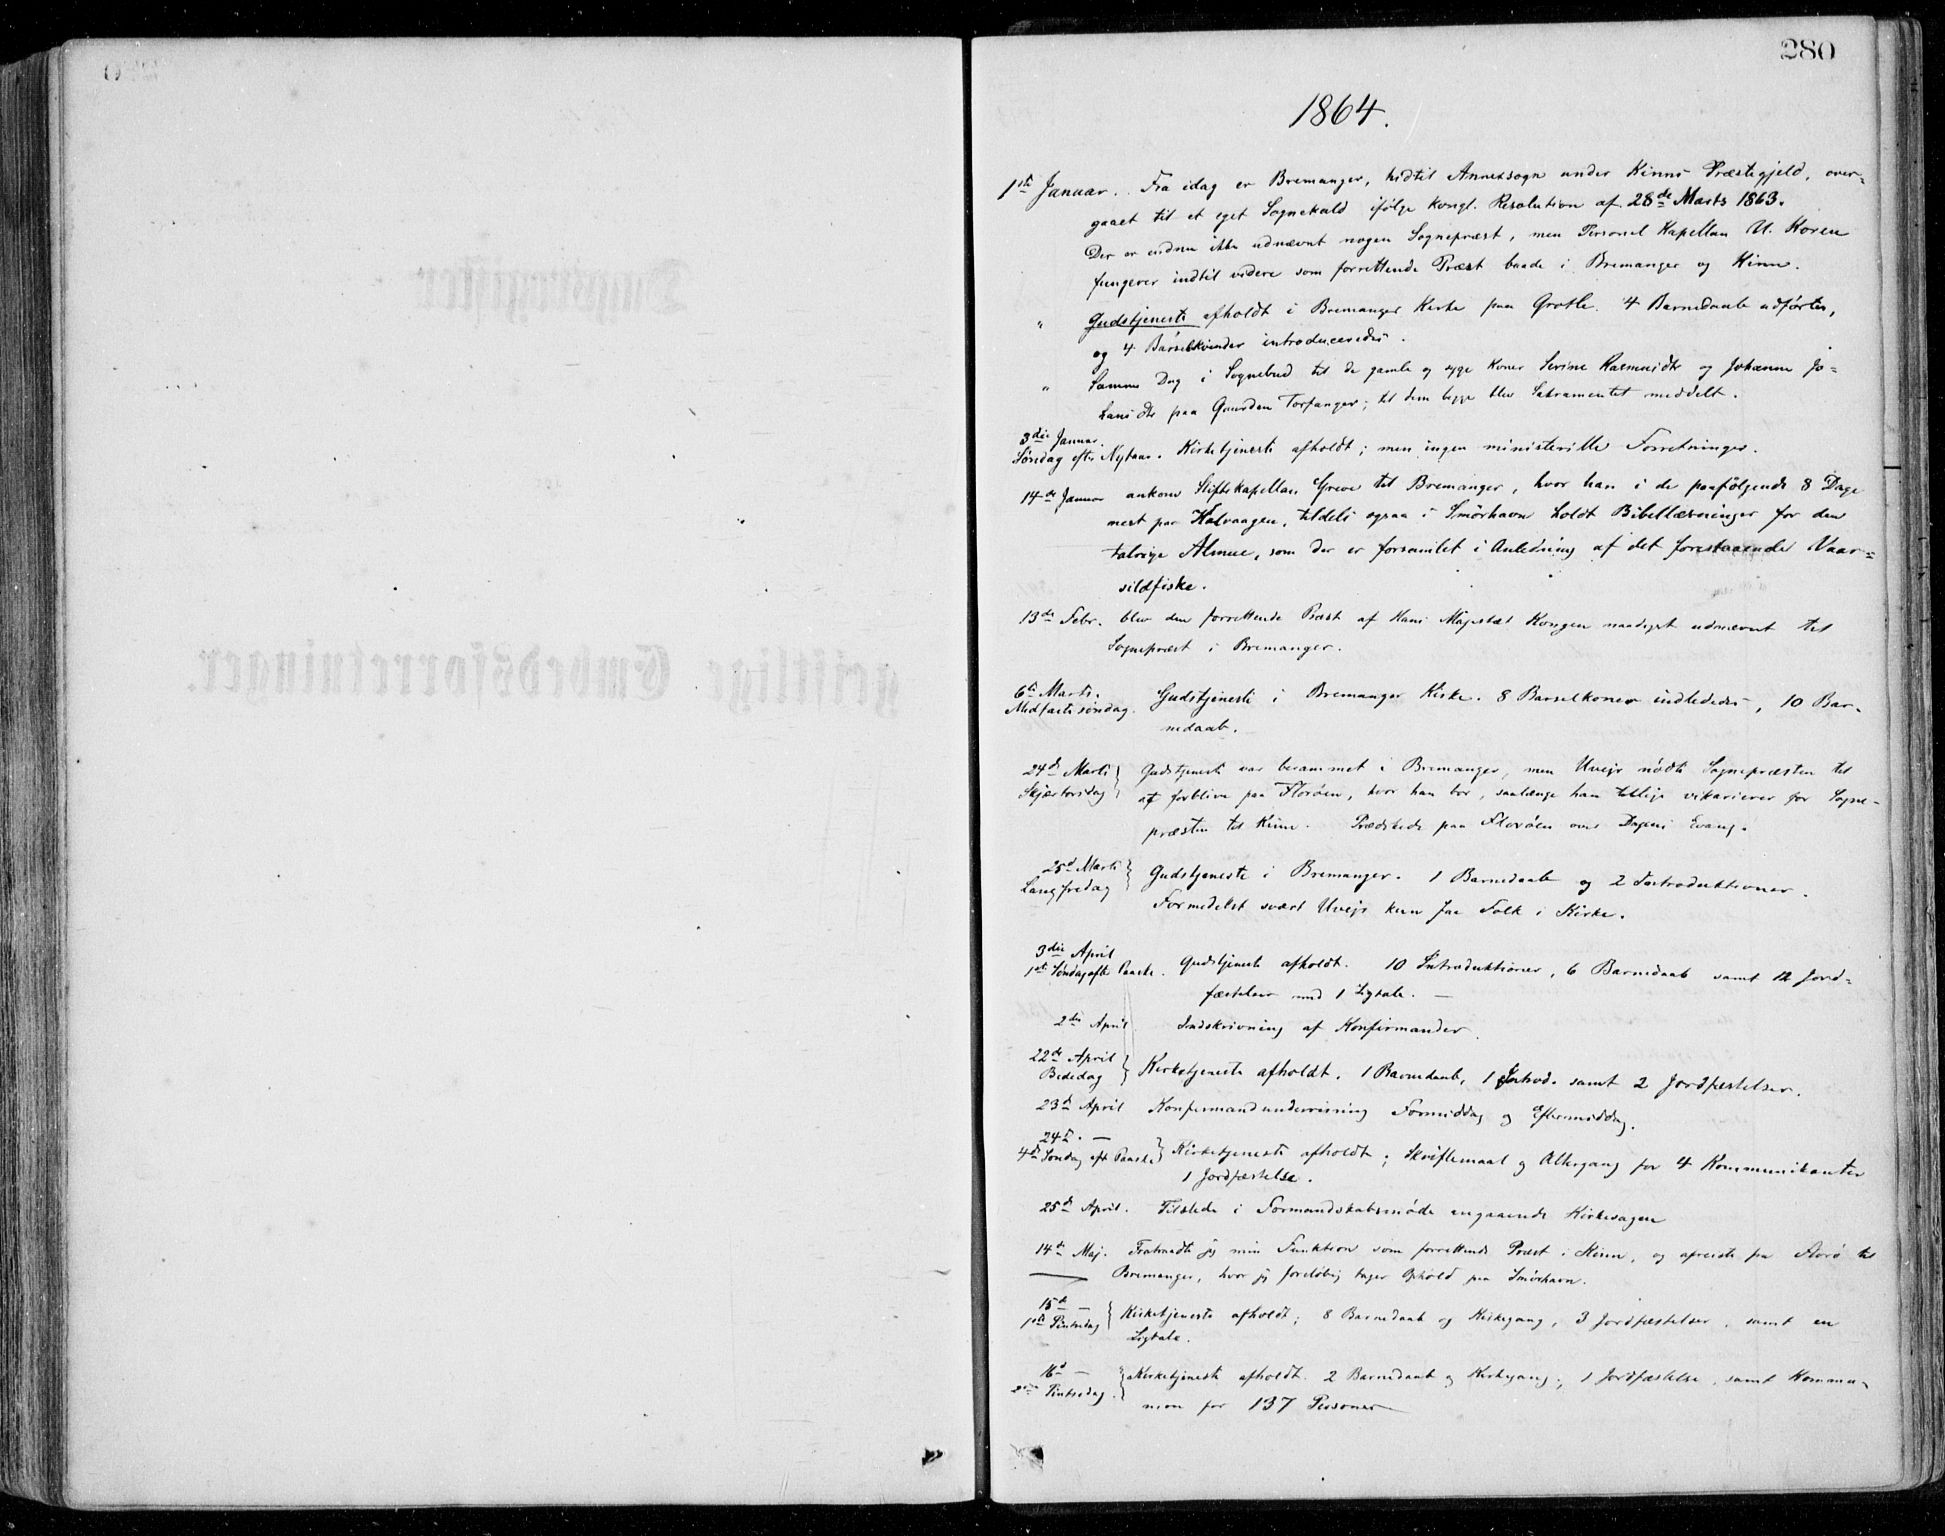 280
1864.
1ste Januar. Fra idag er Bremanger, hidtil Annexsogn under Kinns Præstegjeld, over-
gaaet til et eget Sognekald ifølge kongl. Resolution af 28de Marts 1863.
Der er endnu ikke udnævnt nogen Sognepræst, men Personel Kapellan U. Koren
fungerer indtil videre som forrettende Præst baade i Bremanger og Kinn.
" Gudstjeneste afholdt i Bremanger Kirke paa Grotle. 4 Barnedaab udførtes,
og 4 Barselkvinder introduceredes.
" Samme Dag i Sognebud til de gamle og syge Koner Serine Rasmusdtr og Johanne Jo-
hansdtr paa Gaarden Torfanger; til dem begge blev Sakramentet meddelt.
3die Januar.
Søndag efter Nytaar. Kirketjeneste afholdt; men ingen ministerielle Forretninger.
14de Januar ankom Stiftskapellan Greve til Bremanger, hvor han i de paafølgende 8 Dage
mest paa Kalvaagen, tildels ogsaa i Smörhavn holdt Bibellæsninger for den
talrige Almue, som der er forsamlet i Anledning af det forestaaende Vaar-
sildfiske.
13de Febr. blev den forrettende Præst af Hans Majestæt Kongen naadigst udnævnt til
Sognepræst i Bremanger.
6te Marts.
Midfastesøndag. Gudstjeneste i Bremanger Kirke. 8 Barselkoner indlededes, 10 Bar-
nedaab.
24de Marts
Skjærtorsdag } Gudstjeneste var berammet i Bremanger, men Uveir nødte Sognepræsten til
at forblive paa Florøen, hvor han bor, saalænge han tillige vikarierer for Sogne-
præsten til Kinn. Prædikede paa Florøen over Dagens Evang.
25d Marts
Langfredag } Gudstjeneste i Bremanger. 1 Barnedaab og 2 Introduktioner.
Formedelst svært Uveir kun faa Folk i Kirke.
3die April
1ste Søndag efter Paaske. Gudstjeneste afholdt. 10 Introduktioner, 6 Barnedaab samt 12 Jord-
fæstelser med 1 Ligtale. —
2den April Indskrivning af Konfirmander.
22de April
Bededag } Kirketjeneste afholdt. 1 Barnedaab, 1 Introd. samt 2 Jordfæstelser.
23de April Konfirmandundervisning Formiddag og Eftermiddag.
24de. —
4de Søndag eft Paaske } Kirketjeneste afholdt; Skriftemaal og Altergang for 4 Kommunikanter
1 Jordfæstelse.
25de April. Tilstede i Formandskabsmøde angaaende Kirkesagen
14de Maj. Fratraadte jeg min Funktion som forrettende Præst i Kinn, og afreiste fra Florø til
Bremanger, hvor jeg foreløbig tager Ophold paa Smörhavn.
15de —
1ste Pintsedag } Kirketjeneste afholdt; 8 Barnedaab og Kirkegang, 3 Jordfæstelser, samt en
Ligtale.
16de —
2den Pintsedag. } Kirketjeneste afholdt. 2 Barnedaab og Kirkegang, 1 Jordfæstelse, samt Kommu-
nion for 137 Personer